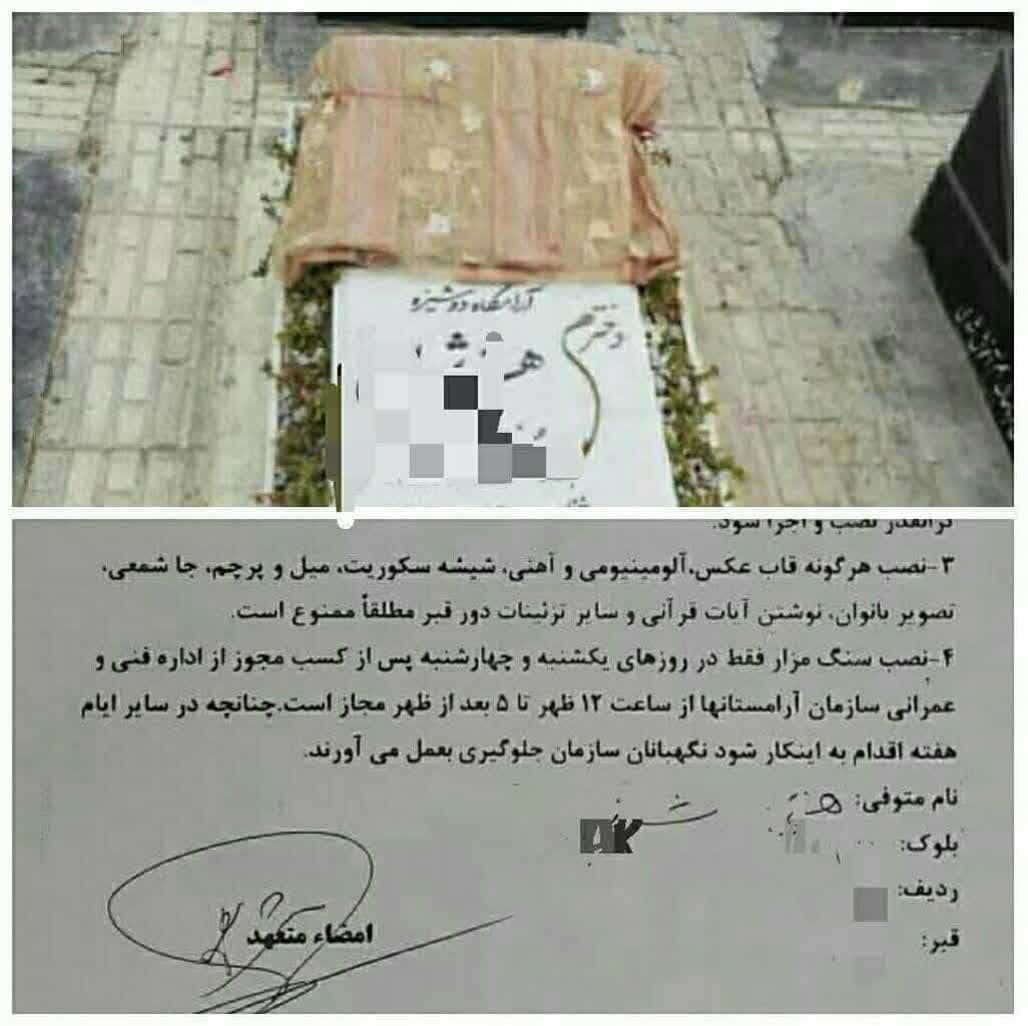 آرامگاه دوشیزه
دخترم
گرانقدر نصب و اجرا شود.
۳-نصب هرگونه قاب عکس،آلومینیومی و آهنی، شیشه سکوریت، میل و پرچم، جا شمعی،
تصویر بانوان، نوشتن آیات قرآنی و سایر تزئینات دور قبر مطلقاً ممنوع است.
۴-نصب سنگ مزار فقط در روزهای یکشنبه و چهارشنبه پس از کسب مجوز از اداره فنی و
عمرانی سازمان آرامستانها از ساعت ۱۲ ظهر تا ۵ بعد از ظهر مجاز است.چنانچه در سایر ایام
هفته اقدام به اینکار شود نگهبانان سازمان جلوگیری بعمل می آورند.
نام متوفی:
بلوک:
AK
ردیف:
قبر:
امضاء متعهد